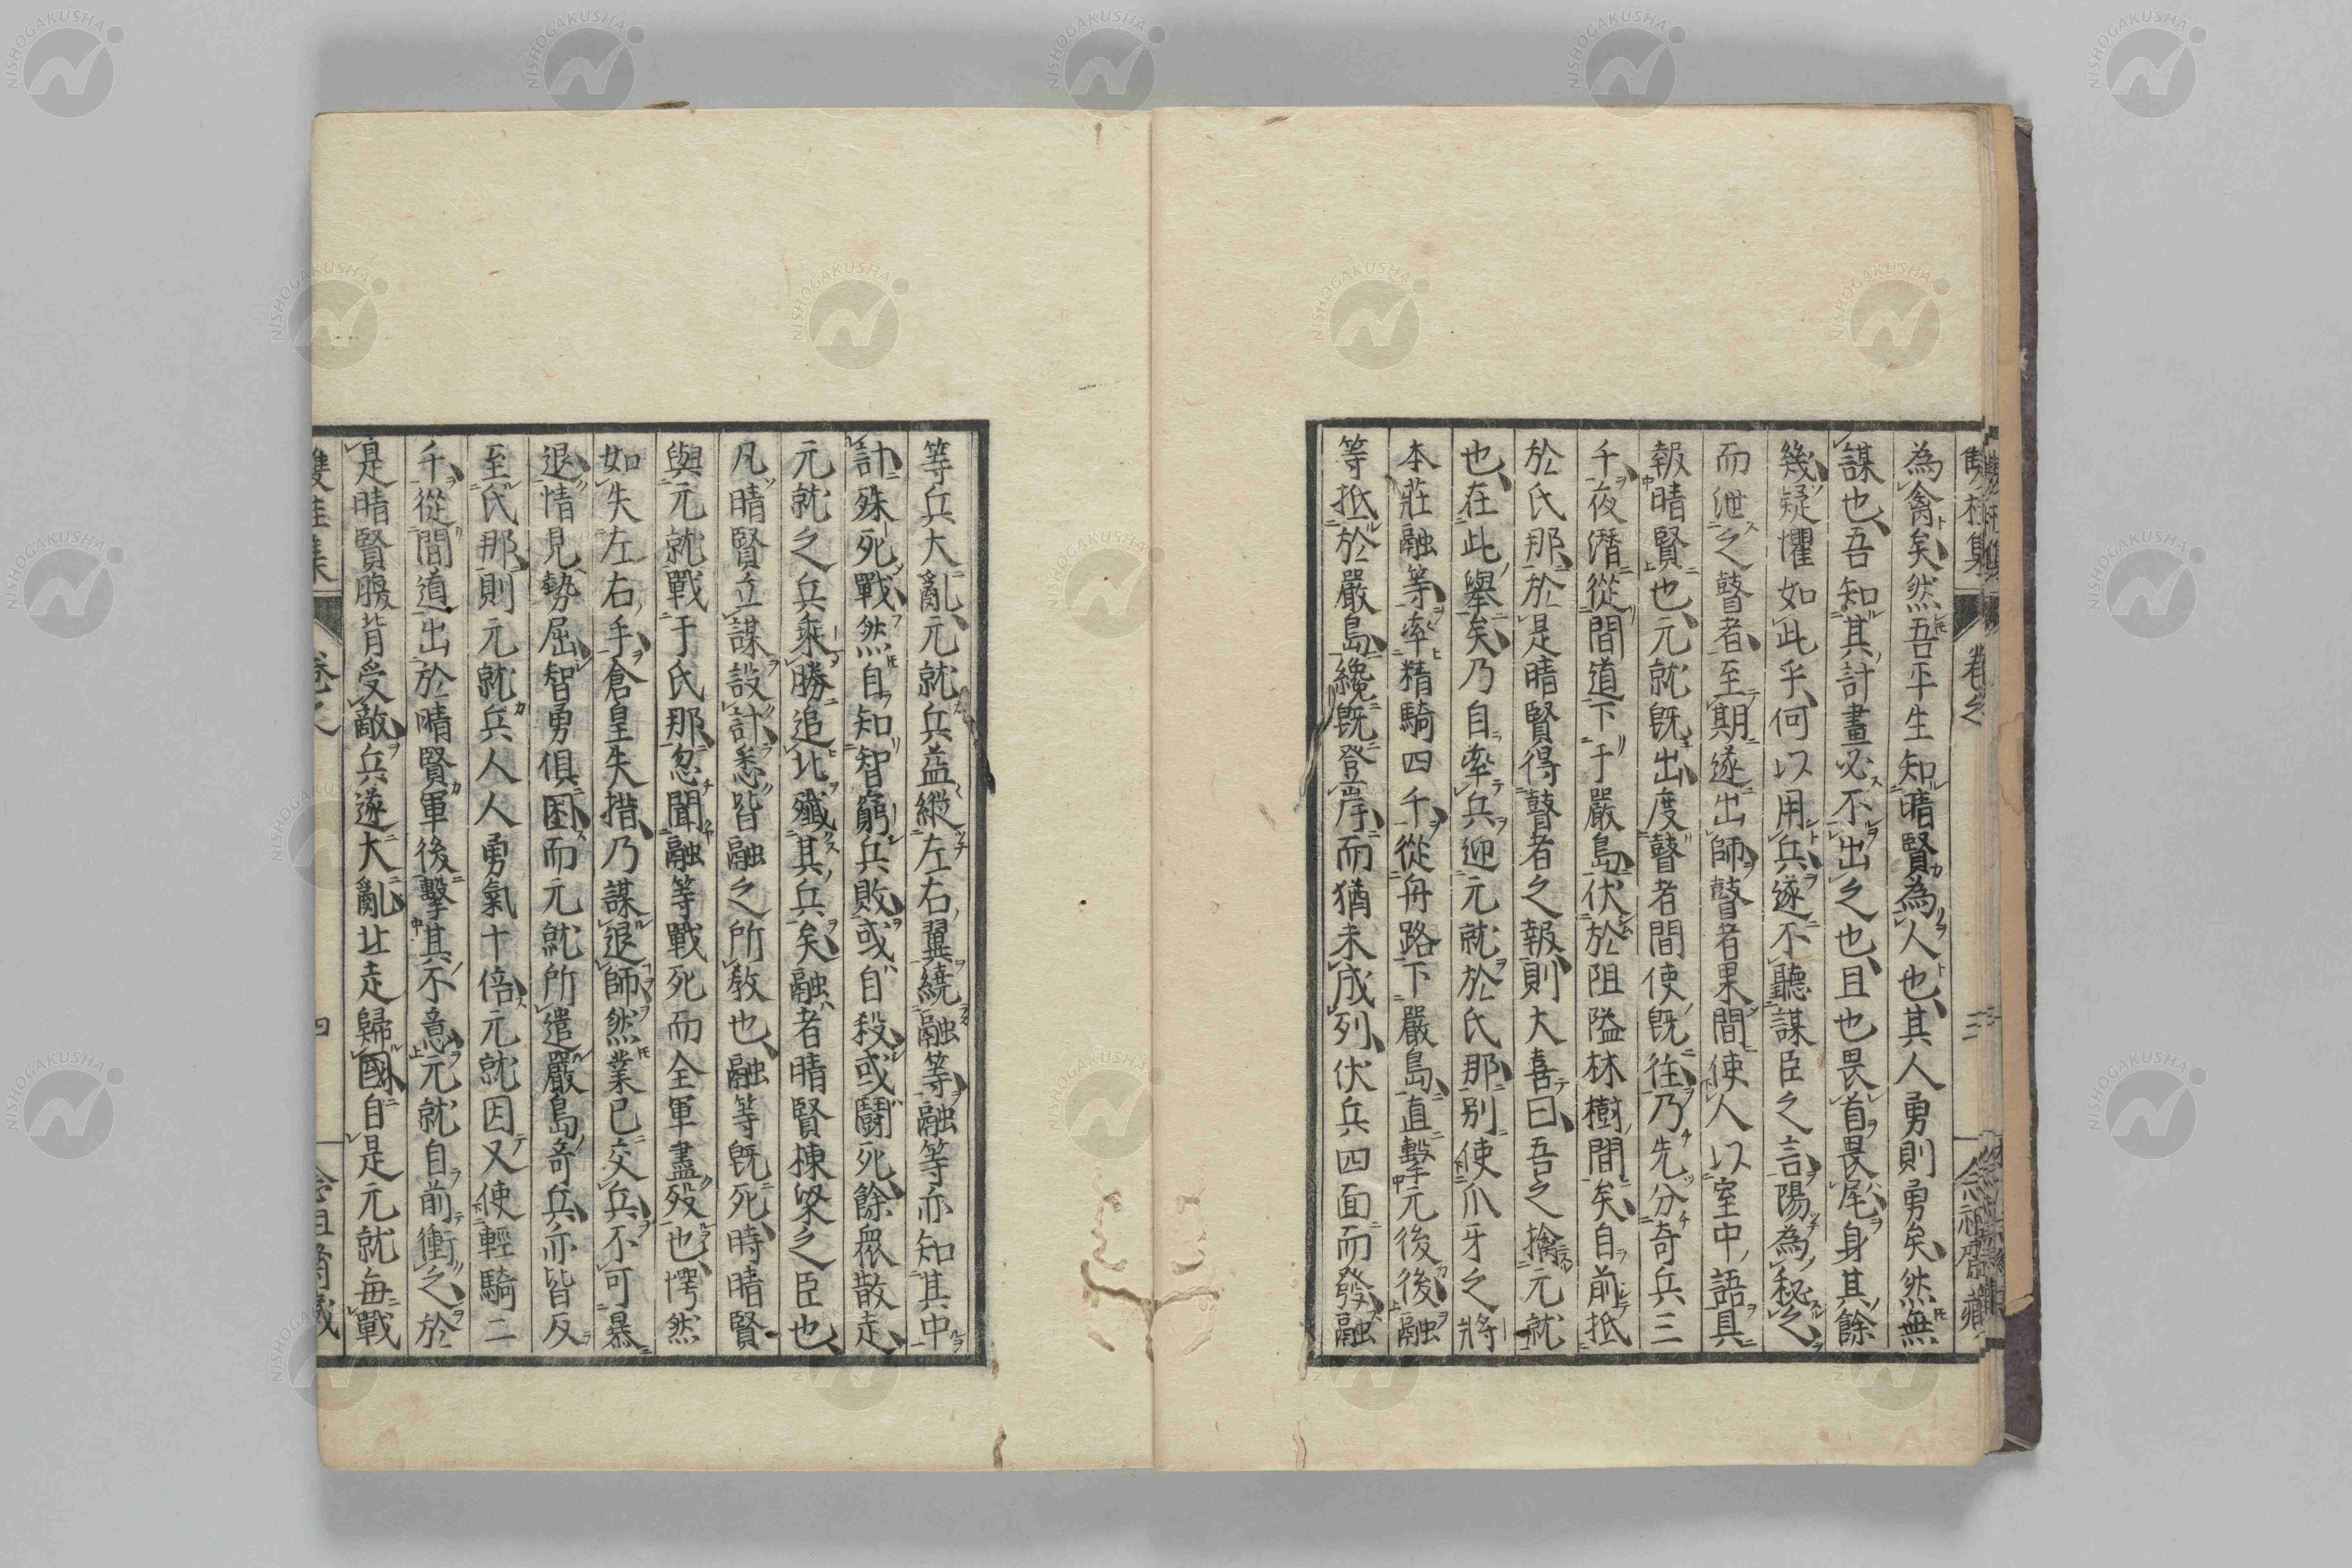 為禽矣然吾平生知晴賢為人也其人勇則勇矣然無
謀也吾知其計畫必不出之也且也畏首畏尾身其餘
幾疑懼如此乎何以用兵遂不聽謀臣之言陽為秘之
而泄之瞽者至期遂出師瞽者果間使人以室中語具
報晴賢也元就既出度瞽者間使既往乃先分奇兵三
千夜潛從間道下于嚴島伏於阻隘林樹間矣自前抵
於氏那於是晴賢得瞽者之報則大喜曰吾之擒元就
也在此舉矣乃自率兵迎元就於氏那別使爪牙之將
本莊融等率精騎四千從舟路下嚴島直擊元後後融
等抵於嚴島纔既登岸而猶未成列伏兵四面而發融
等兵大亂元就兵益縱左右翼繞融等融等亦知其中
計殊死戰然自知智窮兵敗或自殺或鬪死餘眾散走
元就之兵乘勝追北殲其兵矣融者晴賢棟梁之臣也
凡晴賢立謀設計悉皆融之所教也融等既死時晴賢
與元就戰于氏那忽聞融等戰死而全軍盡歿也愕然
如失左右手倉皇失措乃謀退師然業已交兵不可暴
退情見勢屈智勇俱困而元就所遣嚴島奇兵亦皆反
至氏那則元就兵人人勇氣十倍元就因又使輕騎二
千從間道出於晴賢軍後擊其不意元就自前衝之於
是晴賢腹背受敵兵遂大亂北走歸國自是元就每戰
雙桂集 卷之 四
NISHOGAKUSHA